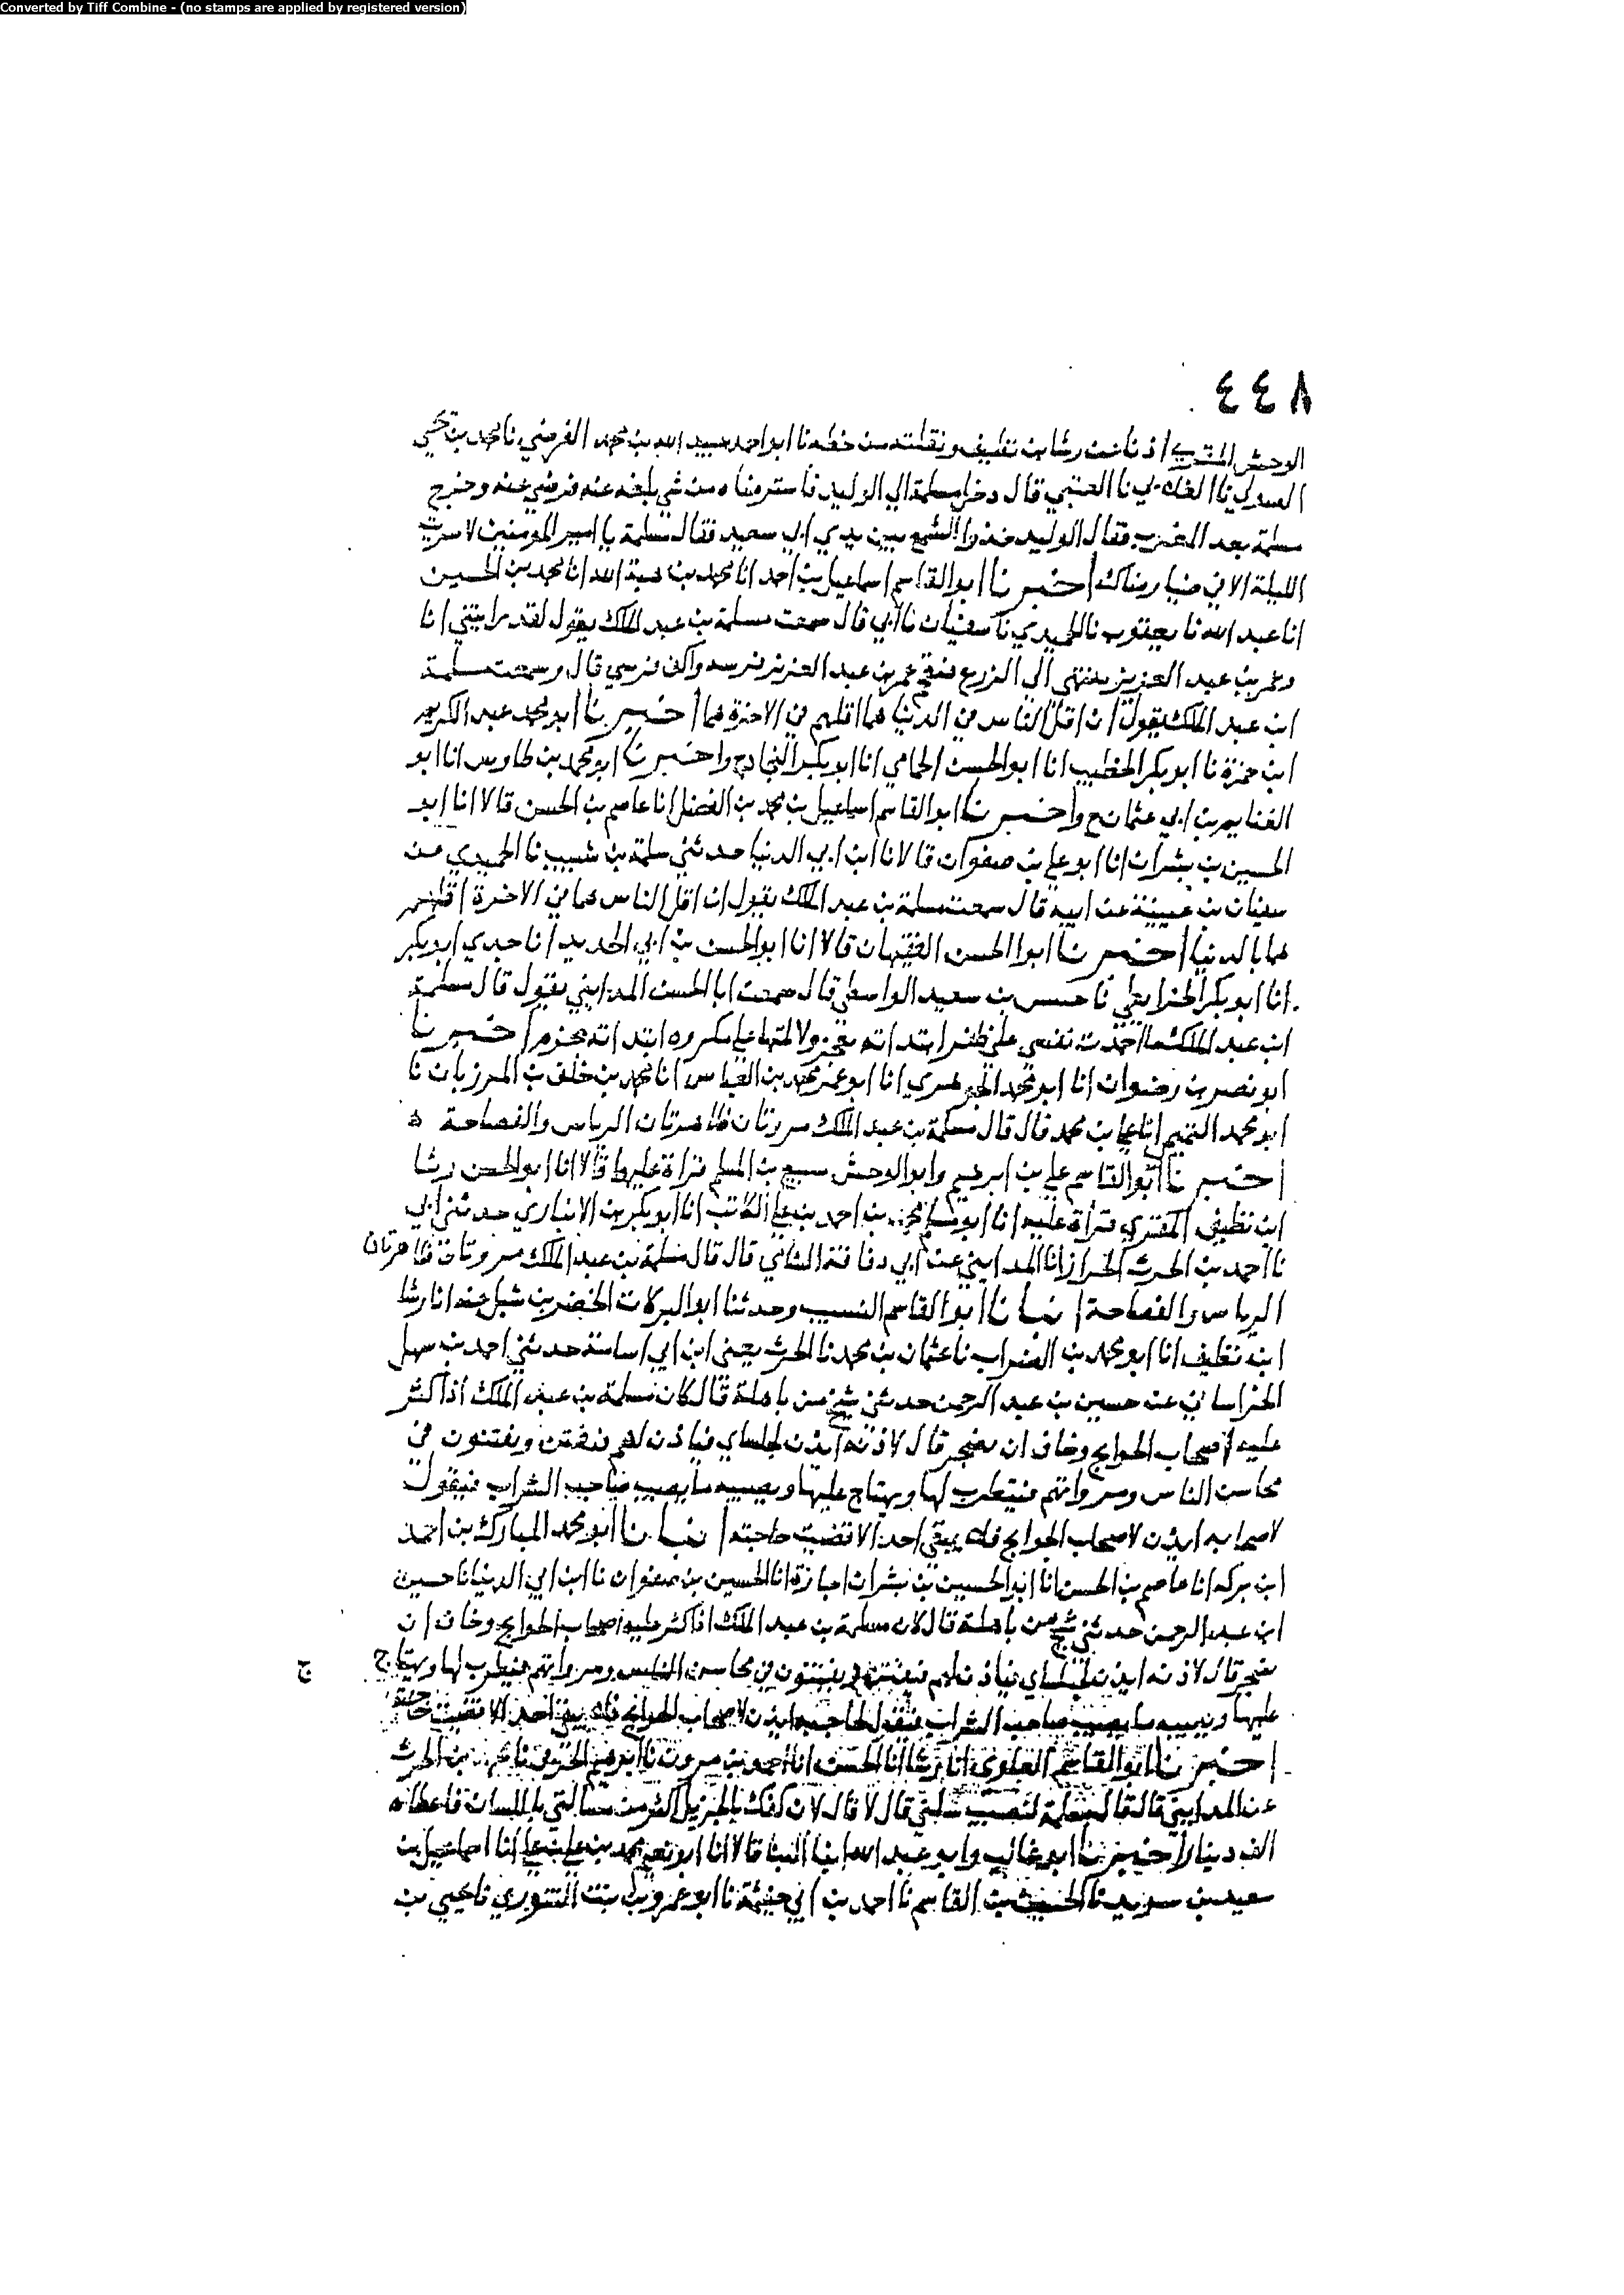 Converted by Tiff Combine - (no stamps are applied by registered version)
٤٤٨
الوحش المقري اذنا عن رشا بن نظيف ونقلته من خطه نا ابو احمد عبيد الله بن محمد الفرضي نا محمد بن يحيى
الصولي نا الغلابي نا العتبي قال دخل مسلمة الي الوليد فاسترضاه من شي بلغه عنه فرضي عنه وخرج
مسلمة بعد المغرب فقال الوليد خذوا الشمع بين يدي ابي سعيد فقال مسلمة يا امير المومنين لا سرت
الليلة الا في ضيا رضاك اخبرنا ابو القاسم اسماعيل بن احمد انا محمد بن هبة الله انا محمد بن الحسين
انا عبد الله نا يعقوب نا الحميدي نا سفيان نا ابي قال سمعت مسلمة بن عبد الملك يقول لقد رايتني انا
وعمر بن عبد العزيز ننتهي الي الزرع عمر بن عبد العزيز فرسه فرسي قال وسمعت مسلمة
ابن عبد الملك يقول ان اقل الناس في الدنيا هما اقلهم في الاخرة هما اخبرنا ابو محمد عبد الكريم
ابن حمزة نا ابو بكر الخطيب انا ابو الحسن الحمامي انا ابو بكر النجاد ح واخبرنا ابو محمد بن طاوس انا ابو
الغنايم بن ابي عثمان ح واخبرنا ابو القاسم اسماعيل بن محمد بن الفضل انا عاصم بن الحسن قالا انا ابو
الحسين بن بشران انا ابو علي بن صفوان قالا نا ابن ابي الدنيا حدثني سلمة بن شبيب نا الحميدي عن
سفيان بن عيينة عن ابيه قال سمعت مسلمة بن عبد الملك يقول ان اقل الناس هما في الاخرة اقلهم
هما بالدنيا اخبرنا ابوا الحسن الفقيهان قالا انا ابو الحسن بن ابي الحديد انا جدي ابو بكر
انا ابو بكر الخرايطي نا بن سعيد الواسطي قال سمعت ابا الحسن المدايني يقول قال مسلمة
ابن عبد الملك ما احمدت نفسي على ظفر ابتداته بعجز ولا لمتها على مكروه ابتداته بحزم اخبرنا
ابو نصر بن رضوان انا ابو محمد الجوهري انا ابو عمر محمد بن العباس انا محمد بن خلف بن المرزبان نا
ابو محمد التميمي انا علي بن محمد قال قال مسلمة بن عبد الملك مروتان ظاهرتان الرياس والفصاحة ه
اخبرنا ابو القاسم علي بن ابرهيم وابو الوحش سبيع بن المسلم قراة عليهما قالا انا ابو الحسن رشا
ابن نظيف المقري قراة عليه انا ابو مسلم محمد بن احمد بن علي الكاتب انا ابو بكر بن الانباري حدثني ابي
نا احمد بن الحرث الخراز انا المدايني عن ابي قال قال مسلمة بن عبد الملك مروتان ظاهرتان
الرياس والفصاحة انبانا ابو القاسم النسيب وحدثنا ابو البركات الخضر بن شبل عنه انا رشا
ابن نظيف انا ابو محمد بن الضراب نا عثمان بن محمد نا الحرث يعني ابن ابي اسامة حدثني احمد بن سهل
الخراساني عن حسين بن عبد الرحمن حدثني شيخ من باهلة قال كان مسلمة بن عبد الملك اذا كثر
عليه اصحاب الحوايج وخاف ان يضجر قال لاذنه ايذن لجلساي فياذن لهم ويفتنون في
محاسن الناس ومرواتهم فيتطرب لها ويهتاج عليها ويصيبه ما يصيب صاحب الشراب فيقول
ايذن لاصحاب الحوايج فلا يبقى احد الا قضيت حاجته انبانا ابو محمد المبارك بن احمد
ابن بركه انا عاصم بن الحسن انا ابو الحسين بن بشران اجازة انا الحسين بن صفوان نا ابن ابي الدنيا نا حسين
ابن عبد الرحمن حدثني شيخ من باهلة قال كان مسلمة بن عبد الملك اذا كثر عليه اصحاب الحوايج وخاف ان
يضجر قال لاذنه ايذن لجلساي فياذن لهم فيفتن ويفتنون في محاسن الناس ومرواتهم فيطرب لها ويهتاج
عليها ويصيبه ما يصيب صاحب الشراب فيقول لحاجبه ايذن لاصحاب الحوايج فلا يبقى احد الا قضيت حاجته
اخبرنا ابو القاسم العلوي انا رشا انا الحسن انا احمد بن مروان نا الحرث
عن المدايني قال قال مسلمة لنصيب سلني قال لا قال لان كفك بالجزيل اكثر من مسالتي باللسان فاعطاه
الف دينار اخبرنا ابو غالب وابو عبد الله ابنا البنا قالا انا محمد بن علي بن علي انا اسماعيل بن
سعيد بن سويد نا الحسين بن القاسم نا احمد بن ابي خيثمة نا ابو عمرو بن بنت التنوري نا يحيى بن